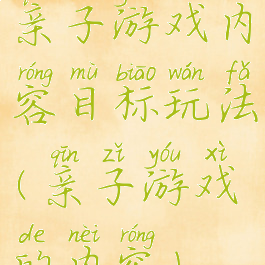 亲子游戏内
róng mù biāo wán fǎ
容目标玩法
qīn zǐ yóu xì
(亲子游戏
de nèi róng
的内容)